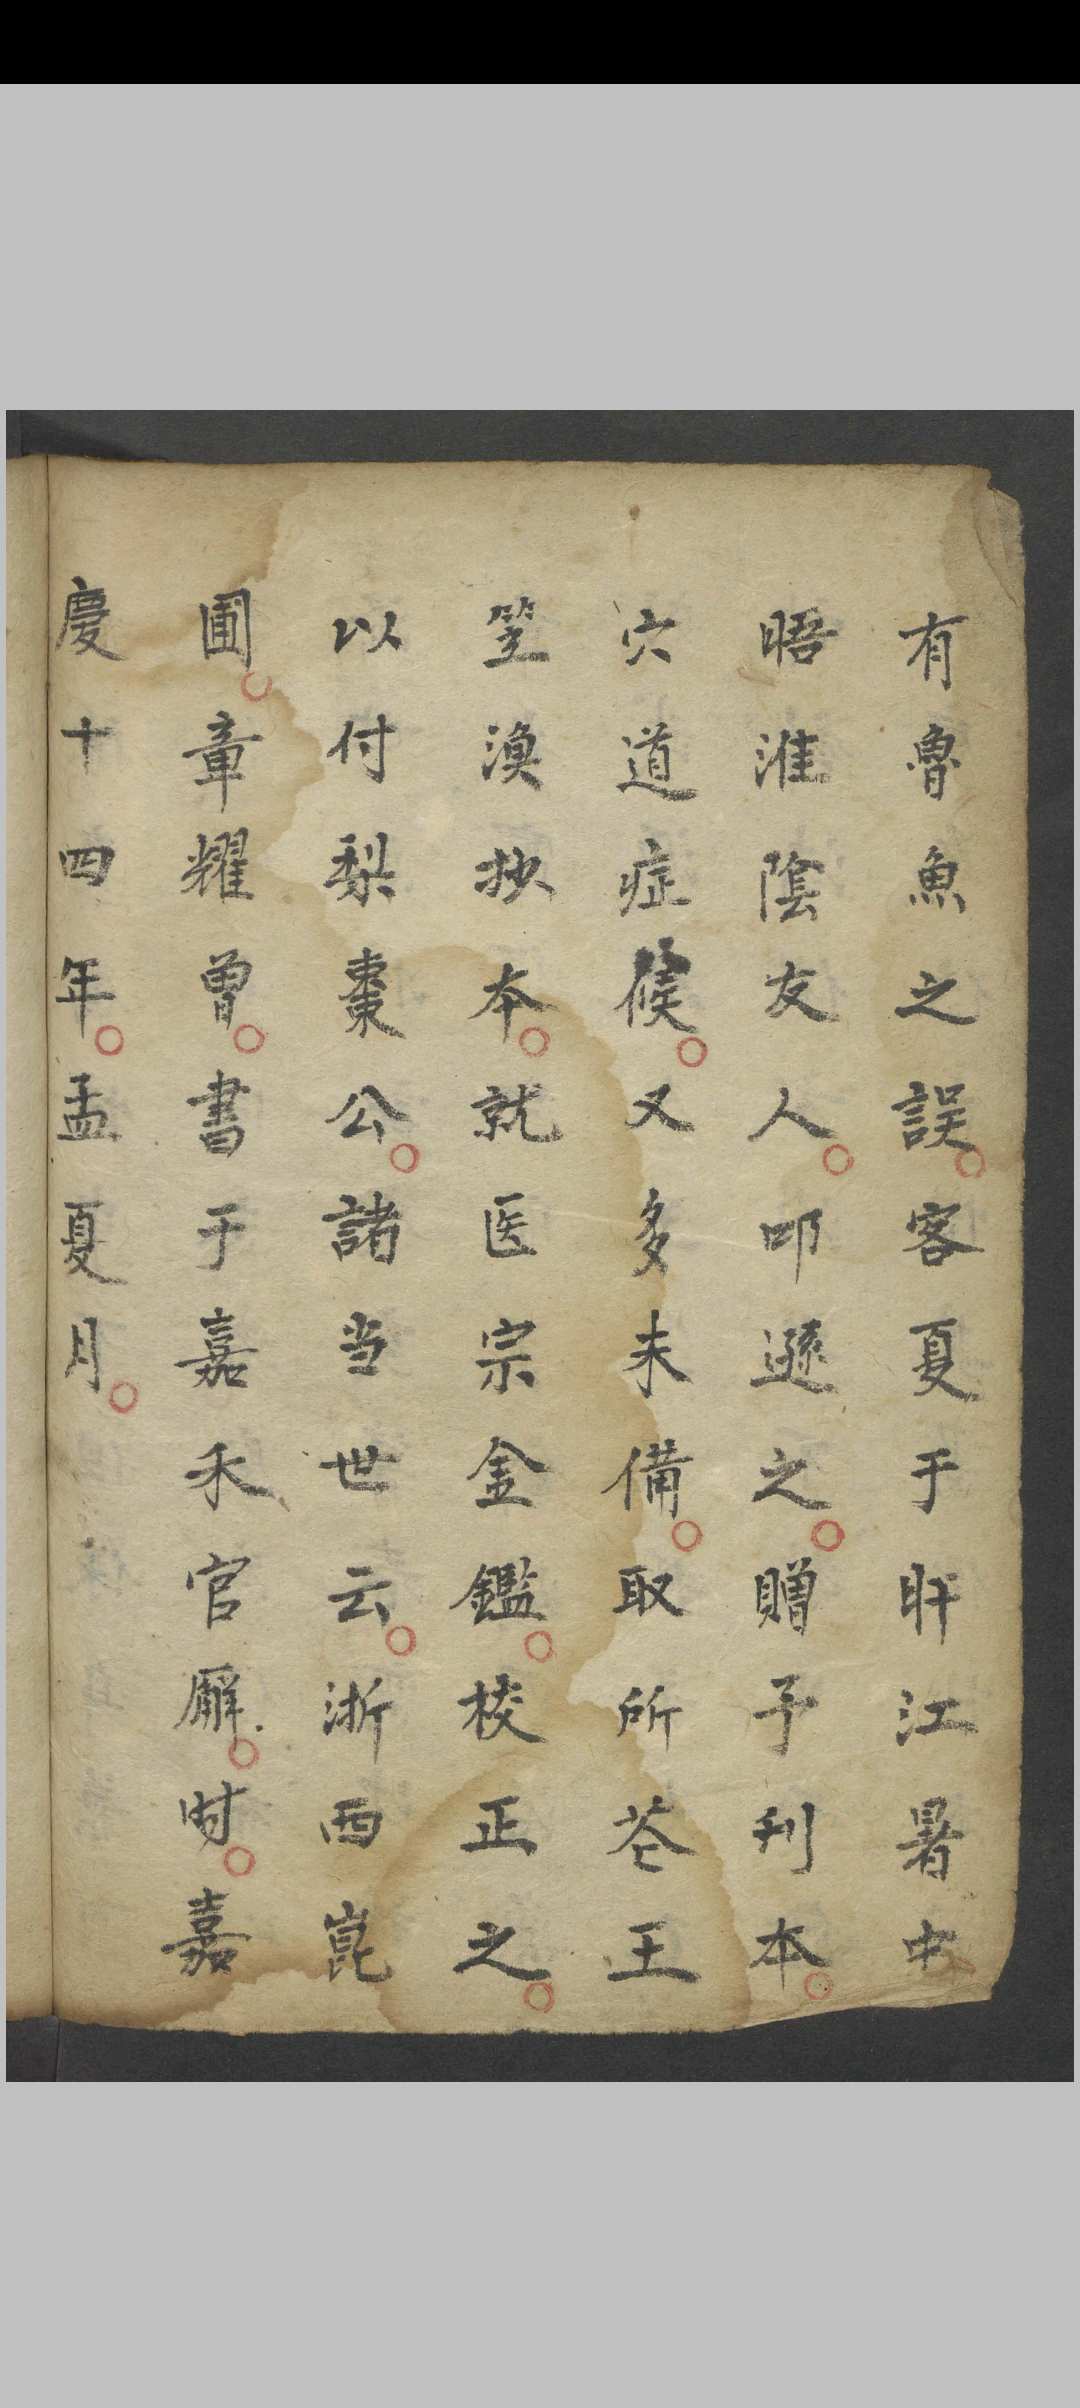 有魯魚之誤○客夏于盱江暑中
晤淮陰友人○叩遜之○贈予刊本○
穴道症候○又多未備○取所茖王
笠漁抄本○就医宗金鑑○校正之○
以付梨棗公○諸当世云○浙西崑
圃○章耀曾○書于嘉禾官廨○时○嘉
慶十四年○孟夏月○